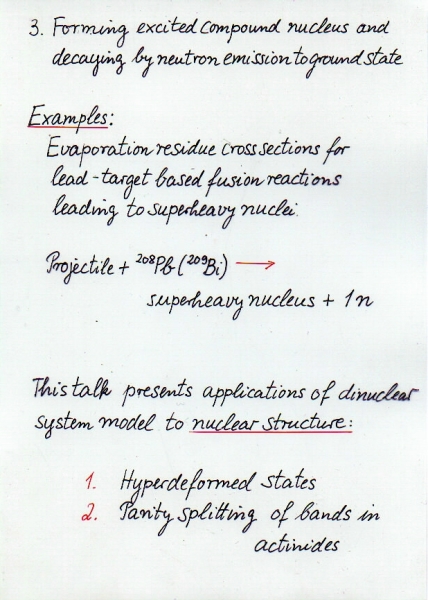 3. Forming excited compound nucleus and
decaying by neutron emission to ground state
Examples:
Evaporation residue cross sections for
lead-target based fusion reactions
leading to superheavy nuclei.
Projectile + ²⁰⁸Pb (²⁰⁹Bi) →
superheavy nucleus + 1n
This talk presents applications of dinuclear
system model to nuclear structure:
1. Hyperdeformed states
2. Parity splitting of bands in
actinides